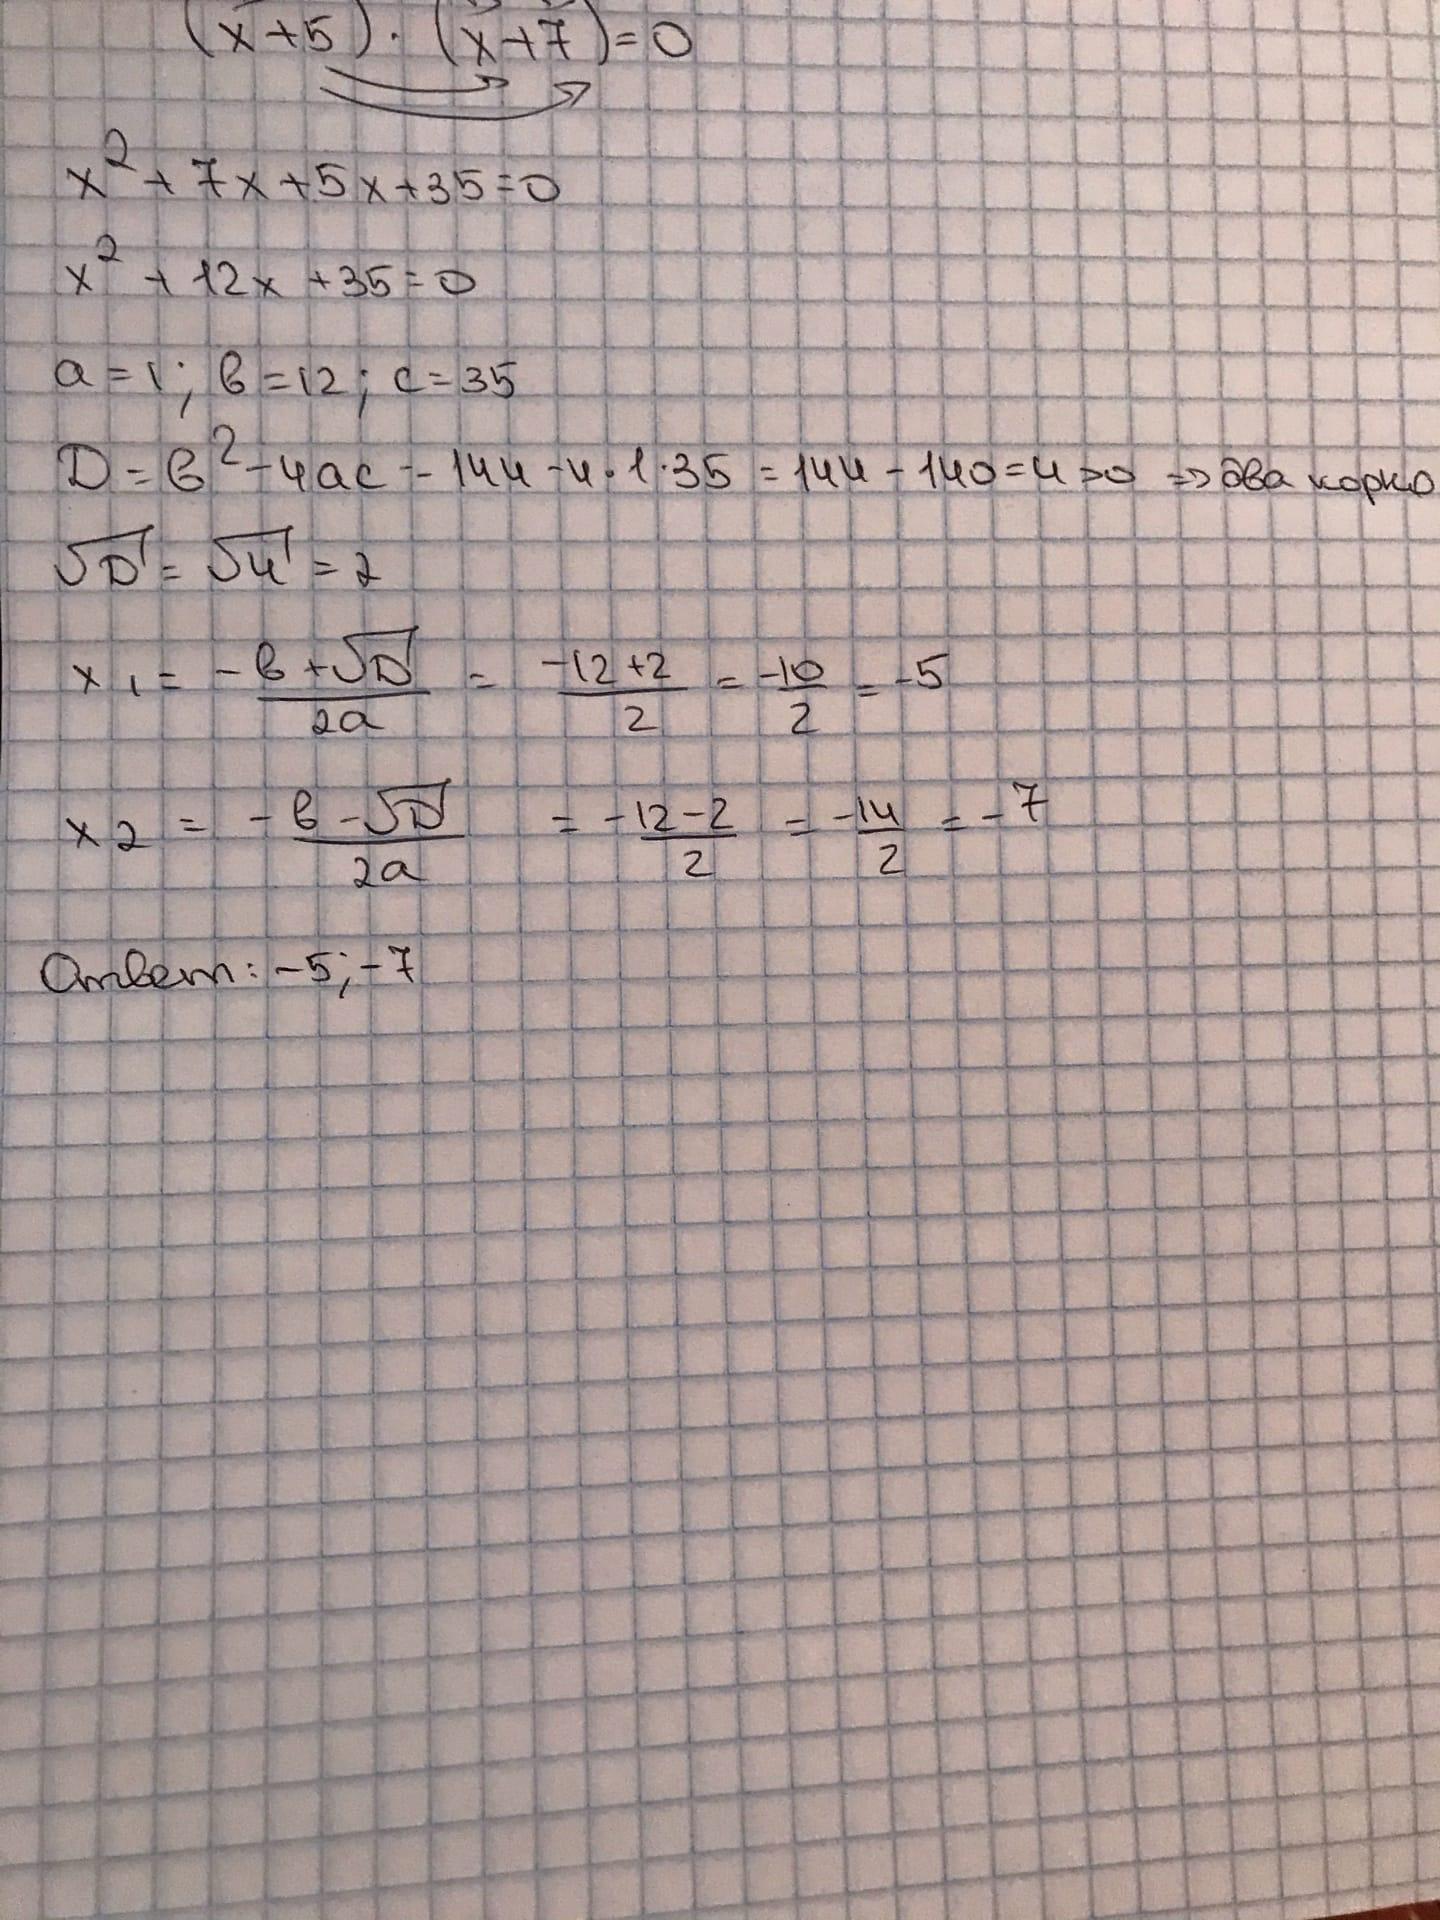 (x+5)·(x+7)=0
x²+7x+5x+35=0
x²+12x+35=0
a=1; b=12; c=35
D=b²-4ac=144-4·1·35=144-140=4>0 => два корня
√D=√4=2
x₁=(-b+√D)/2a=(-12+2)/2=-10/2=-5
x₂=(-b-√D)/2a=(-12-2)/2=-14/2=-7
Ответ: -5; -7